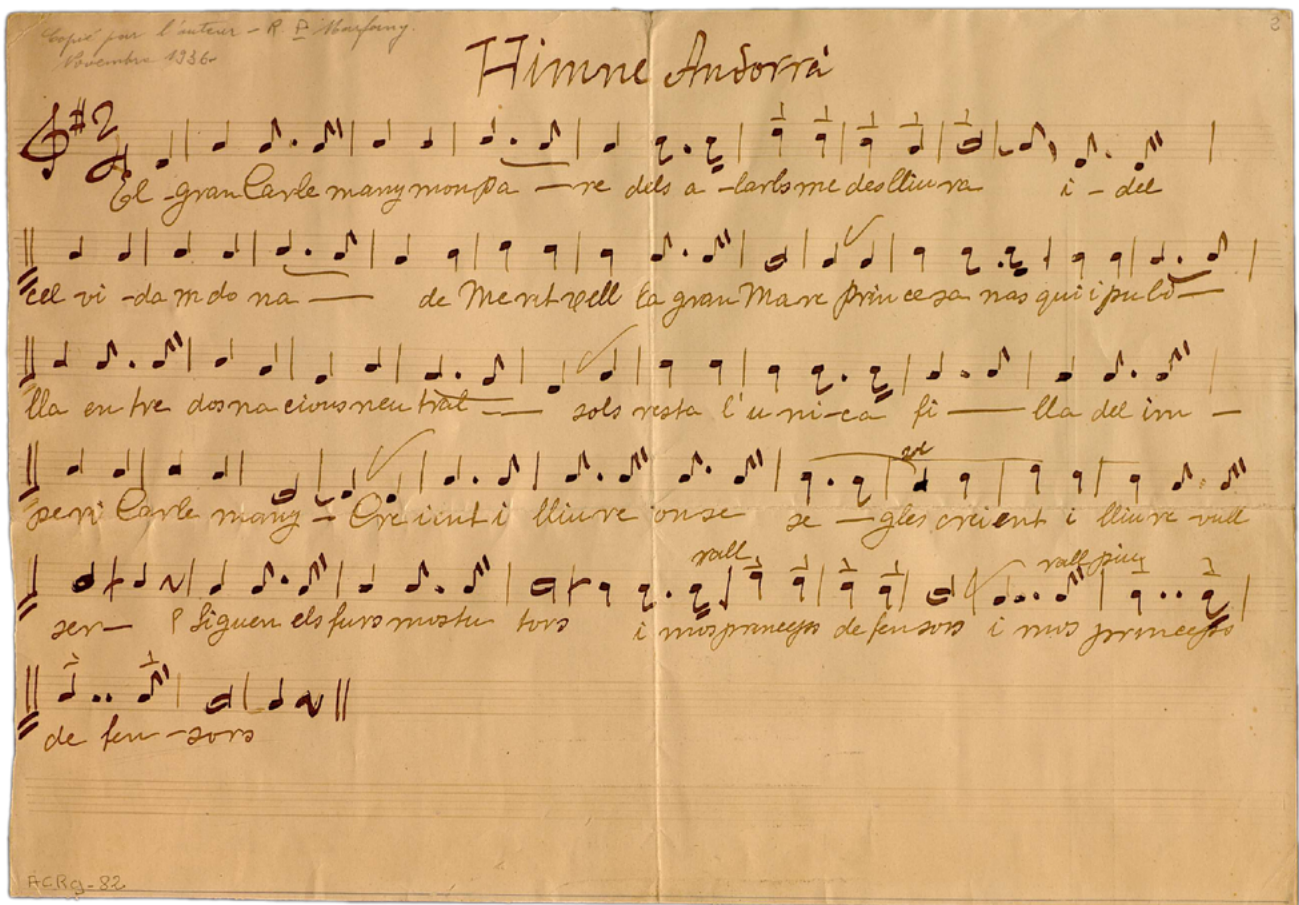 Copié par l'auteur – R. P. Marfany.
Novembre 1936
2
Himne Andorrà
El – gran Carlemany mon pa — re dels a – larbs me deslliura i – del
cel vi – da m do na — de Meritxell la gran Mare Princesa nasqui i pubi —
lla entre dos nacions neu tral — sols resta l'u ni – ca fi — lla del im –
peri Carle many – Creient i lliure onse se – gles creient i lliure vull
rall. rall piu
ser — Siguen els furs mos tu tors i mos princeps defensors i mos princeps
de fen – sors
ACRg-82